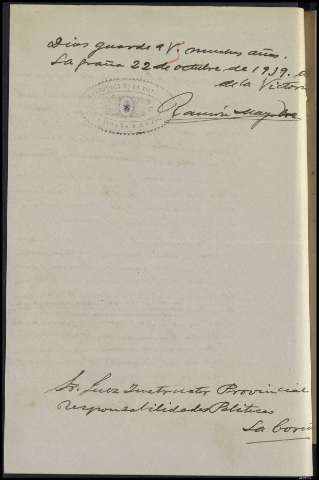 Dios guarde a V. muchos años.
La graña 22 de octubre de 1939. A
de la Victori
Ramón Mayobre
Sr. Juez Instructor Provincial
responsabilidades Politicas
La Coru